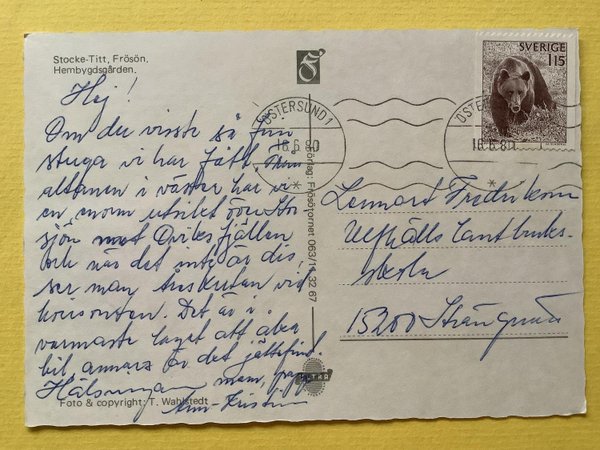 Stocke-Titt, Frösön,
Hembygdsgården.
Hej!
Om du visste så fin
stuga vi har fått, från
altanen i väster har vi
en enorm utsikt över Stor
sjön mot Oviksfjällen
och när det inte är dis,
ser man Åreskutan vid
horisonten. Det är i
varmaste laget att åka
bil, annars är det jättefint.
Hälsningar mam, papp
Ann-Kristin
Foto & copyright: T. Wahlstedt
Förlag: Frösötornet 063/11 32 67
ULTRA
ÖSTERSUND 1
16.6.80
SVERIGE
115
ÖSTERSUND
16.6.80
Lennart Fredriksson
Ulfhälls Lantbruks-
skola
15200 Strängnäs